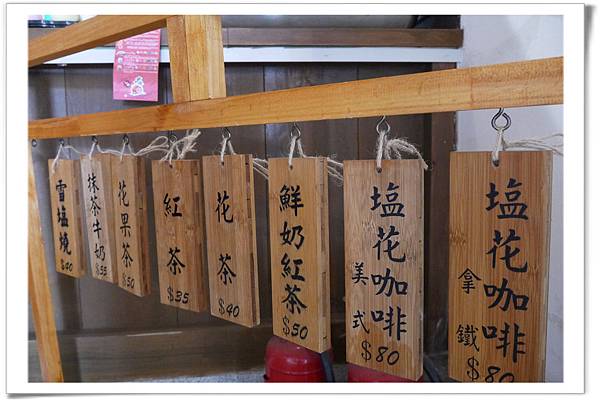 雪塩燒
$40
抹茶牛奶
$55
花果茶
$50
紅茶
$35
花茶
$40
鮮奶紅茶
$50
塩花咖啡
美式
$80
塩花咖啡
拿鐵
$80